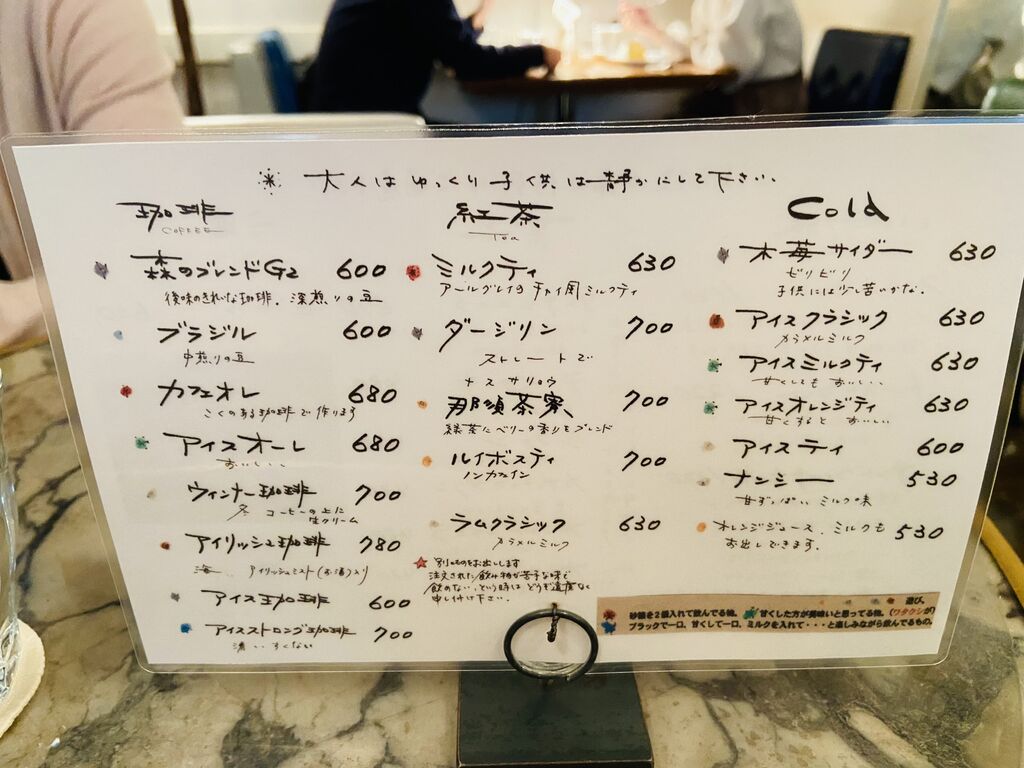 大人はゆっくり子供は静かにして下さい
珈琲
COFFEE
森のブレンドG2 600
後味のきれいな珈琲、深煎りの豆
ブラジル 600
中煎りの豆
カフェオレ 680
こくのある珈琲で作ります
アイスオーレ 680
おいしい
ウィンナー珈琲 700
冬 コーヒーの上に
生クリーム
アイリッシュ珈琲 780
アイリッシュミスト(お酒)入り
アイス珈琲 600
アイスストロング珈琲 700
濃い すくない
紅茶
Tea
ミルクティ 630
アールグレイのチャイ風ミルクティ
ダージリン 700
ストレートで
ナス サリョウ
那須茶寮 700
緑茶にベリーの香りをブレンド
ルイボスティ 700
ノンカフェイン
ラムクラシック 630
カラメルミルク
別のものをお出しします
注文された飲み物が苦手な味で
飲めない、という時は どうぞ遠慮なく
申し付け下さい。
Cold
木苺サイダー 630
ビリビリ
子供には少し苦いかな。
アイスクラシック 630
カラメルミルク
アイスミルクティ 630
甘くしても おいしい
アイスオレンジティ 630
甘くすると おいしい
アイスティ 600
ナンシー 530
甘ずっぱい ミルク味
オレンジジュース、ミルクも 530
お出しできます。
遊び。
砂糖を2個入れて飲んでる物。 甘くした方が美味いと思ってる物。(ワタクシが)
ブラックで一口、甘くして一口、ミルクを入れて・・・と楽しみながら飲んでるもの。